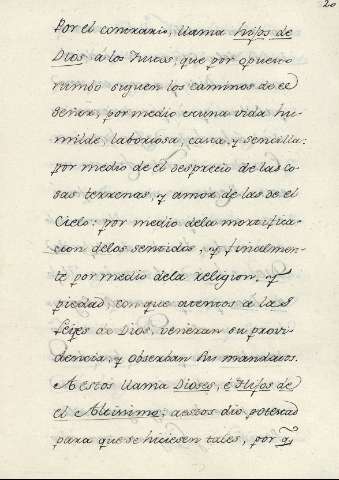 20
Por el contrario, llama hijos de
Dios, à los Justos, que por opuesto
rumbo siguen los caminos de el
Señor, por medio de una vida hu-
milde, laboriosa, casta, y sencilla:
por medio de el desprecio de las co-
sas terrenas, y amor de las de el
Cielo: por medio dela mortifica-
cion delos sentidos, y finalmen-
te por medio dela religion, y
piedad, con que atentos à la
de Dios, veneran su provi-
dencia, y observan sus mandatos.
A estos llama Dioses, è Hijos de
el Altisimo: aestos dio potestad
para que se hiciesen tales, por q